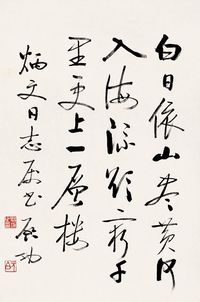 白日依山尽黄河
入海流欲穷千
里更上一层楼
炳文同志属书 启功